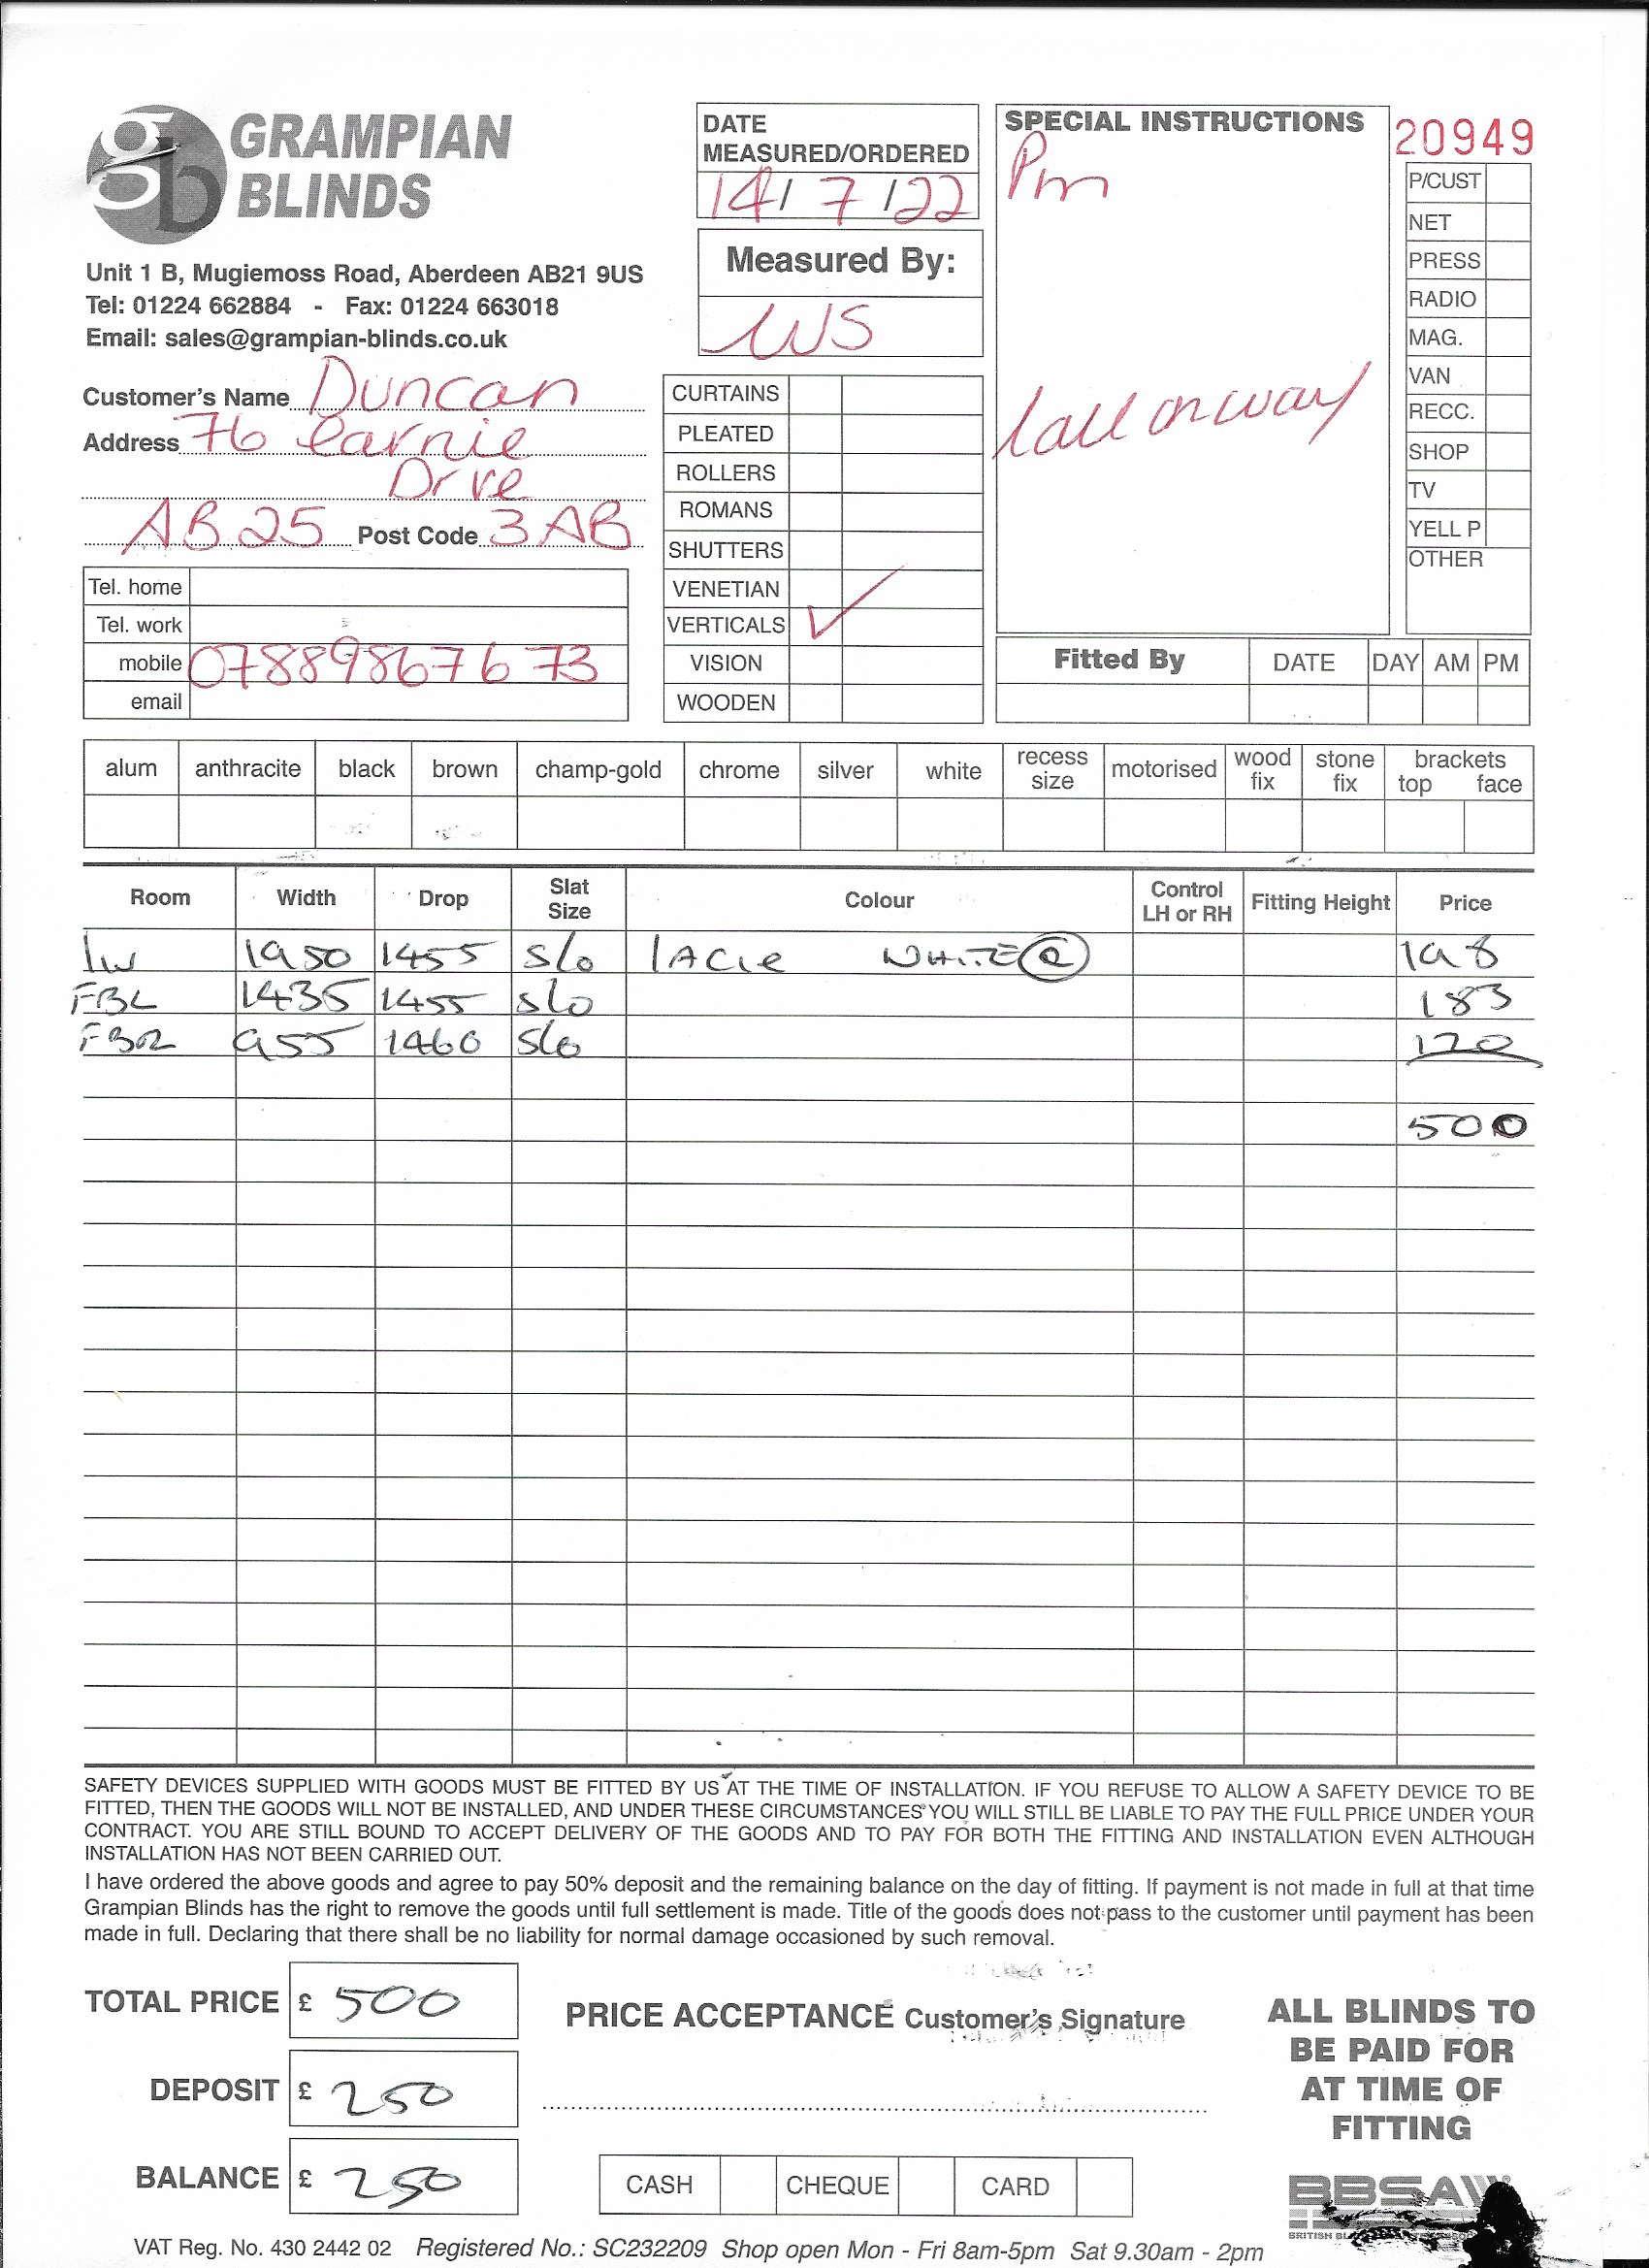 gb GRAMPIAN
BLINDS
Unit 1 B, Mugiemoss Road, Aberdeen AB21 9US
Tel: 01224 662884 - Fax: 01224 663018
Email: sales@grampian-blinds.co.uk
Customer's Name Duncan
Address 76 Carnie
Drive
AB25 Post Code 3AB
Tel. home
Tel. work
mobile 07889867673
email
DATE
MEASURED/ORDERED
14/7/22
Measured By:
WS
CURTAINS
PLEATED
ROLLERS
ROMANS
SHUTTERS
VENETIAN
VERTICALS ✓
VISION
WOODEN
SPECIAL INSTRUCTIONS
Pm
Call on way
20949
P/CUST
NET
PRESS
RADIO
MAG.
VAN
RECC.
SHOP
TV
YELL P
OTHER
Fitted By DATE DAY AM PM
alum anthracite black brown champ-gold chrome silver white recess size motorised wood fix stone fix brackets top face
Room Width Drop Slat Size Colour Control LH or RH Fitting Height Price
1950 1455 WHITE 198
FBL 1435 1455 183
FBR 955 1460 120
500
SAFETY DEVICES SUPPLIED WITH GOODS MUST BE FITTED BY US AT THE TIME OF INSTALLATION. IF YOU REFUSE TO ALLOW A SAFETY DEVICE TO BE
FITTED, THEN THE GOODS WILL NOT BE INSTALLED, AND UNDER THESE CIRCUMSTANCES YOU WILL STILL BE LIABLE TO PAY THE FULL PRICE UNDER YOUR
CONTRACT. YOU ARE STILL BOUND TO ACCEPT DELIVERY OF THE GOODS AND TO PAY FOR BOTH THE FITTING AND INSTALLATION EVEN ALTHOUGH
INSTALLATION HAS NOT BEEN CARRIED OUT.
I have ordered the above goods and agree to pay 50% deposit and the remaining balance on the day of fitting. If payment is not made in full at that time
Grampian Blinds has the right to remove the goods until full settlement is made. Title of the goods does not pass to the customer until payment has been
made in full. Declaring that there shall be no liability for normal damage occasioned by such removal.
TOTAL PRICE £ 500
DEPOSIT £ 250
BALANCE £ 250
PRICE ACCEPTANCE Customer's Signature
CASH CHEQUE CARD
ALL BLINDS TO
BE PAID FOR
AT TIME OF
FITTING
BBSA
BRITISH
VAT Reg. No. 430 2442 02 Registered No.: SC232209 Shop open Mon - Fri 8am-5pm Sat 9.30am - 2pm